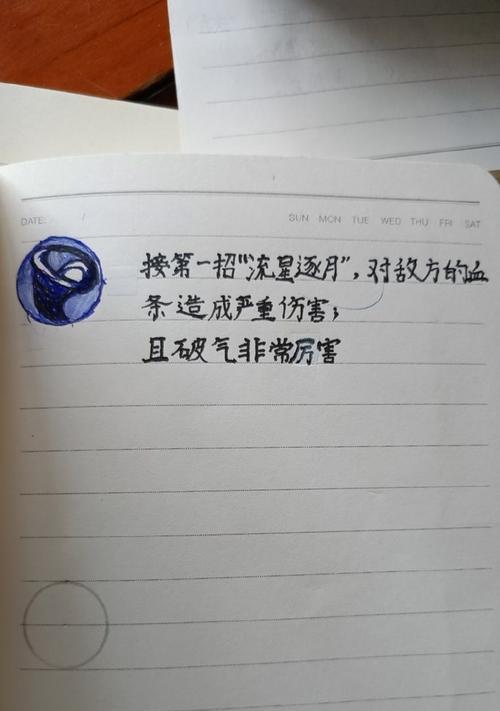 DATE: /
SUN MON TUE WED THU FRI SAT
接第一招"流星逐月"，对敌方的血
条造成严重伤害；
且破气非常厉害